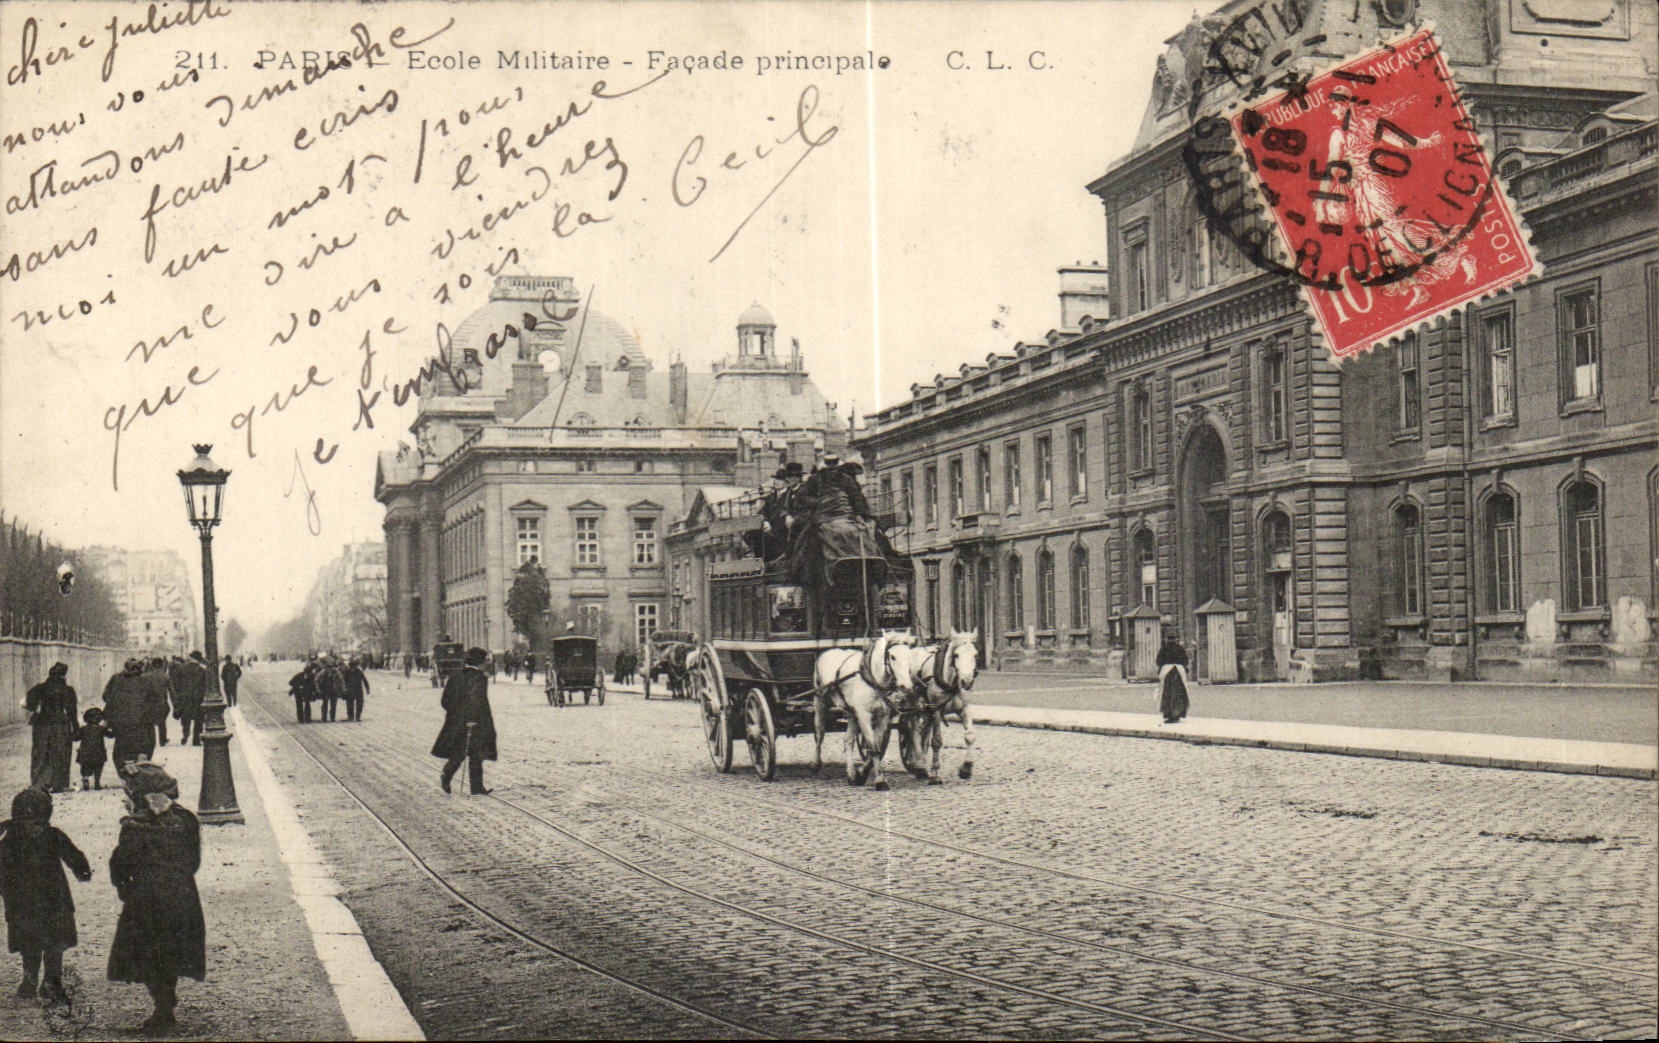 chère Juliette
nous vous
attandons dimanche
sans faute ecris
moi un mot pour
me dire a l'heure
que vous viendrez
que je sois la. Cecil
je t'embrasse
211. PARIS - Ecole Militaire - Façade principale C. L. C.
REPUBLIQUE FRANÇAISE
POSTES
10
PARIS XVIII
18
15 -11
07
R. DE CLIGNANCOURT